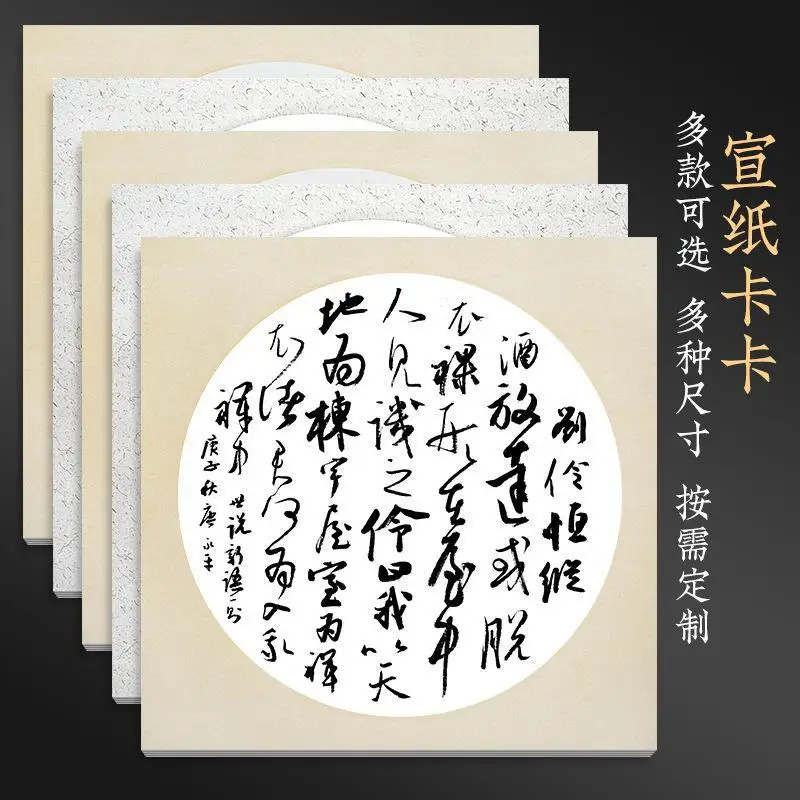 宣纸卡卡
多款可选 多种尺寸 按需定制
劉伶恒縱
酒放達或脱
衣裸形在屋中
人見譏之伶曰我以天
地为棟宇屋室为裈
衣诸君何为入我
裈中 世说新語一则
庚子秋唐永平